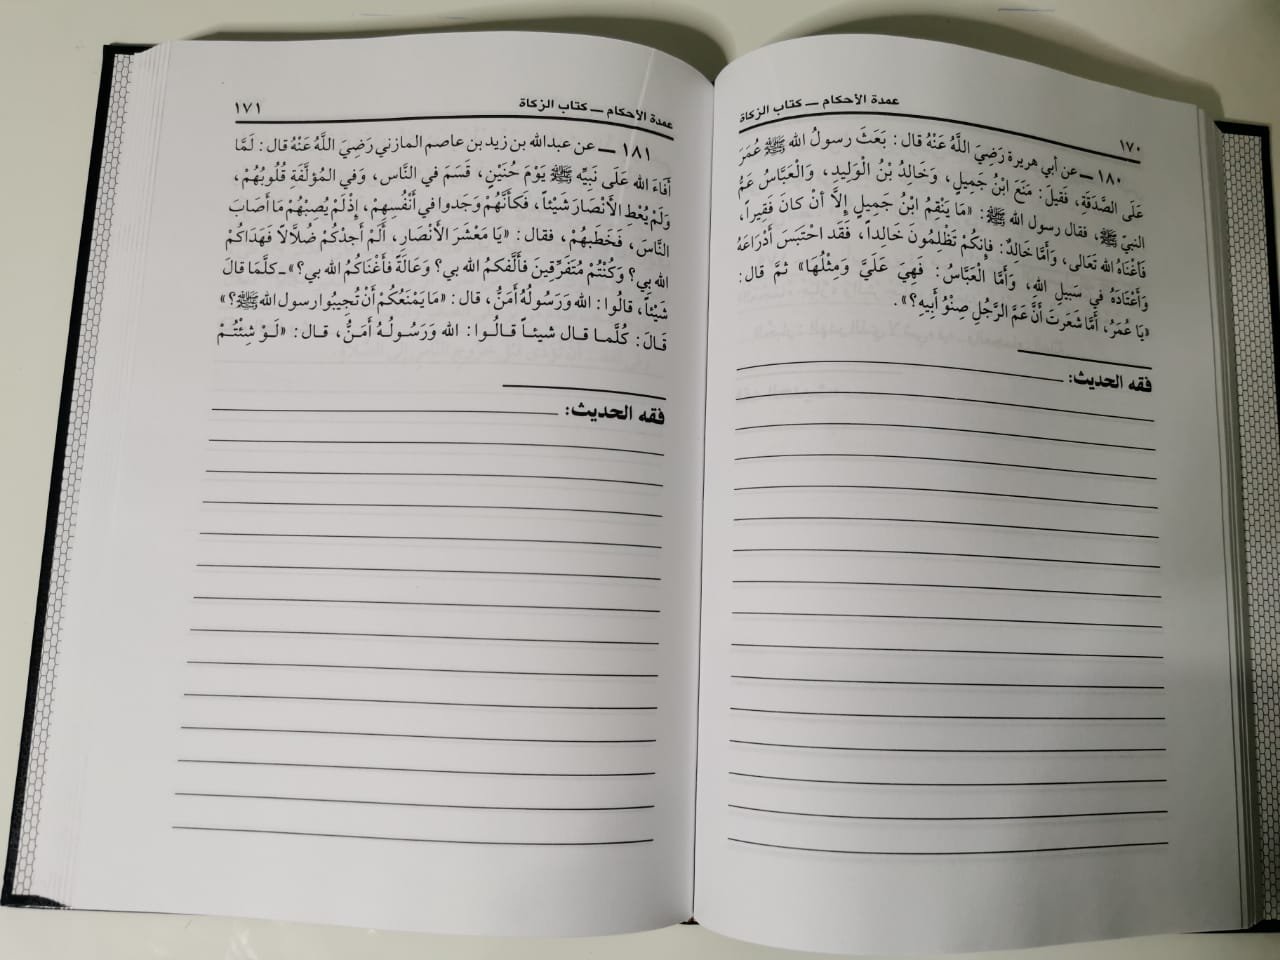 عمدة الأحكام ــ كتاب الزكاة
١٧٠
١٨٠ ــ عن أبي هريرة رَضِيَ اللَّهُ عَنْهُ قال : بَعَثَ رسولُ الله ﷺ عُمَرَ
عَلَى الصَّدَقَةِ، فَقيلَ: مَنَعَ ابْنُ جَميلٍ، وَخَالِدُ بْنُ الْوَلِيدِ، وَالْعَبَّاسُ عَمُّ
النبيّ ﷺ، فقال رسول الله ﷺ: «مَا يَنْقِمُ ابْنُ جَميلٍ إِلَّا أنْ كانَ فَقِيراً،
فَأغْنَاهُ الله تَعَالى، وَأمَّا خَالِدٌ: فإِنكُمْ تَظْلِمُونَ خَالِداً، فَقَد احْتَبَسَ أدْرَاعَهُ
وَأعْتَادَهُ في سَبيلِ الله، وَأمَّا الْعَبَّاسُ: فَهِيَ عَلَيَّ وَمِثْلُهَا» ثمَّ قال :
«يَا عُمَرُ، أمَّا شَعَرتَ أنَّ عَمَّ الرَّجُلِ صِنْوُ أبِيهِ؟».
فقه الحديث:
عمدة الأحكام ــ كتاب الزكاة
١٧١
١٨١ ــ عن عبدالله بن زيد بن عاصم المازني رَضِيَ اللَّهُ عَنْهُ قال : لَمَّا
أفَاءَ الله عَلَى نَبيِّه ﷺ يَوْمَ حُنَيْنٍ، قَسَمَ في النَّاس، وَفي المُؤلَّفَةِ قُلُوبُهُمْ،
وَلَمْ يُعْطِ الأنْصَارَ شَيْئاً، فَكأنَّهُمْ وَجَدوا في أنْفُسِهِمْ، إِذْ لَمْ يُصِبْهُمْ مَا أصَابَ
النَّاسَ، فَخَطَبَهُمْ، فقال : «يَا مَعْشَرَ الأنْصَارِ، ألَمْ أجِدْكُمْ ضُلَّالًا فَهَدَاكُمْ
الله بي؟ وَكُنْتُمْ مُتَفَرِّقِينَ فَألَّفَكمُ الله بي؟ وَعَالَةً فأغْنَاكُمُ الله بي؟» ــ كلَّمَا قالَ
شَيْئاً، قالُوا : الله وَرَسُولُهُ أمَنُّ، قال : «مَا يَمْنَعُكُمْ أنْ تُجيبُوا رسول الله ﷺ؟»
قَالَ : كُلَّما قال شيئاً قالُوا : الله وَرَسُولهُ أمَنُّ، قال : «لَوْ شِئْتُمْ
فقه الحديث: